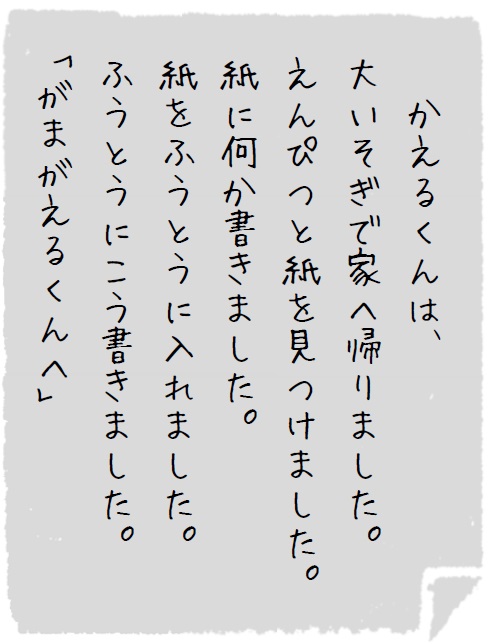 かえるくんは、
大いそぎで家へ帰りました。
えんぴつと紙を見つけました。
紙に何か書きました。
紙をふうとうに入れました。
ふうとうにこう書きました。
「がまがえるくんへ」